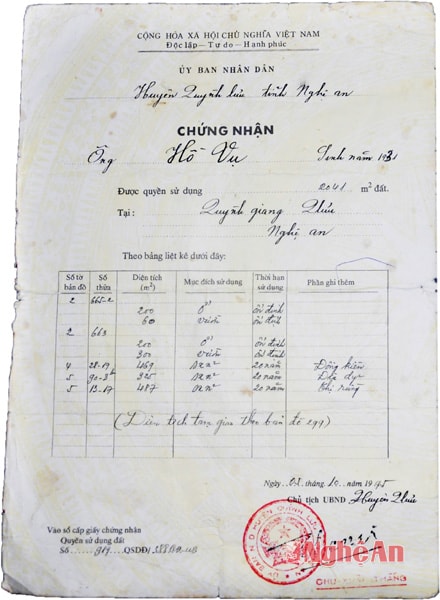 CỘNG HÒA XÃ HỘI CHỦ NGHĨA VIỆT NAM
Độc lập — Tự do — Hạnh phúc
ỦY BAN NHÂN DÂN
Huyện Quỳnh lưu tỉnh Nghệ an
CHỨNG NHẬN
Ông Hồ Vụ Sinh năm 1931
Được quyền sử dụng 2041 m² đất.
Tại: Quỳnh giang Q lưu
Nghệ an
Theo bảng liệt kê dưới đây:
Số tờ bản đồ Số thửa Diện tích (m²) Mục đích sử dụng Thời hạn sử dụng Phần ghi thêm
2 665-2
200 Ở ổn định
60 vườn ổn định
2 663
200 Ở ổn định
300 vườn ổn định
4 28-19 469 20 năm
5 325 20 năm
5 13-17 487 20 năm
(Diện tích tạm giao theo bản đồ 299)
Ngày 02 tháng 10 năm 1995
Chủ tịch UBND Huyện Q lưu
Vào sổ cấp giấy chứng nhận
Quyền sử dụng đất
Số QSDĐ/
NghệAn